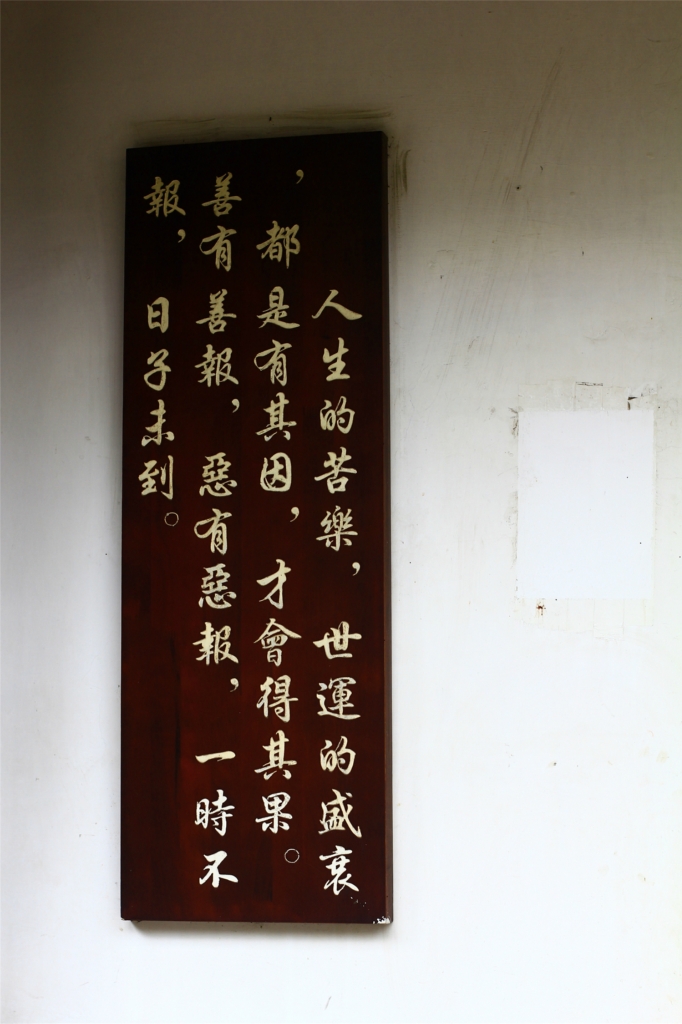 人生的苦樂，世運的盛衰
，都是有其因，才會得其果。
善有善報，惡有惡報，一時不
報，日子未到。